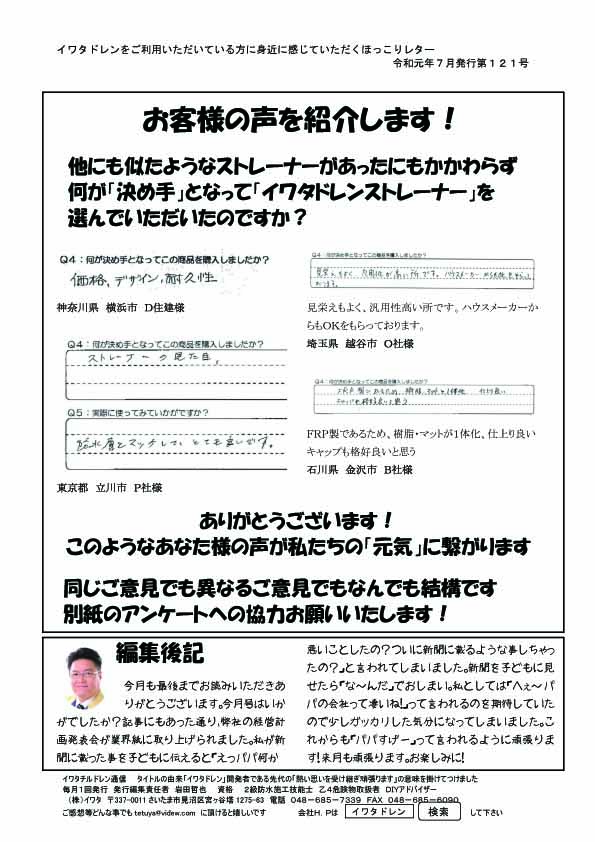 イワタドレンをご利用いただいている方に身近に感じていただくほっこりレター
令和元年７月発行第１２１号
お客様の声を紹介します！
他にも似たようなストレーナーがあったにもかかわらず
何が「決め手」となって「イワタドレンストレーナー」を
選んでいただいたのですか？
Q4：何が決め手となってこの商品を購入しましたか？
価格，デザイン，耐久性
神奈川県 横浜市 D住建様
Q4：何が決め手となってこの商品を購入しましたか？
ストレーナーの見た目。
Q5：実際に使ってみていかがですか？
防水層とマッチしていてとても良いです。
東京都 立川市 P社様
Q4：何が決め手となってこの商品を購入しましたか？
見栄えもよく、汎用性が高い所です。ハウスメーカー
見栄えもよく、汎用性高い所です。ハウスメーカーか
らもOKをもらっております。
埼玉県 越谷市 O社様
Q4：何が決め手となってこの商品を購入しましたか？
FRP製であるため、樹脂、マットが1体化、仕上り良い
キャップも格好良いと思う
FRP製であるため、樹脂・マットが1体化、仕上り良い
キャップも格好良いと思う
石川県 金沢市 B社様
ありがとうございます！
このようなあなた様の声が私たちの「元気」に繋がります
同じご意見でも異なるご意見でもなんでも結構です
別紙のアンケートへの協力お願いいたします！
編集後記
今月も最後までお読みいただきあ
りがとうございます。今月号はいか
がでしたか？記事にもあった通り、弊社の経営計
画発表会が業界紙に取り上げられました。私が新
聞に載った事を子どもに伝えると「えっパパ何か
悪いことしたの？ついに新聞に載るような事しちゃっ
たの？」と言われてしまいました。新聞を子どもに見
せたら「な～んだ」でおしまい。私としては「へぇ～パ
パの会社って凄いね！」って言われるのを期待していた
ので少しガッカリした気分になってしまいました。こ
れからも「パパすげー」って言われるように頑張りま
す！来月も頑張ります。お楽しみに！
イワタチルドレン通信 タイトルの由来「イワタドレン」開発者である先代の「熱い思いを受け継ぎ頑張ります」の意味を掛けてつけました
毎月１回発行 発行編集責任者 岩田哲也 資格 ２級防水施工技能士 乙４危険物取扱者 DIYアドバイザー
（株）イワタ 〒337-0011 さいたま市見沼区宮ヶ谷塔 1275-63 電話 048-685-7339 FAX 048-685-6090
ご感想等どんな事でも tetuya@videw.com に頂けると嬉しいです 会社Ｈ.Ｐは イワタドレン 検索 して下さい